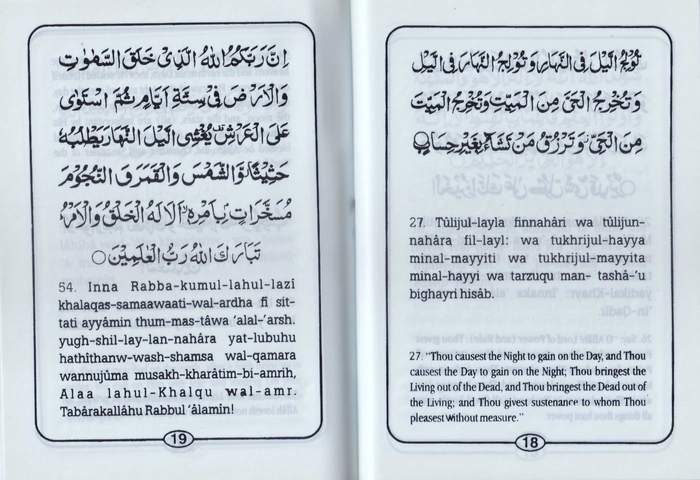 تُولِجُ الَّيْلَ فِي النَّهَارِ وَتُولِجُ النَّهَارَ فِي الَّيْلِ
وَتُخْرِجُ الْحَيَّ مِنَ الْمَيِّتِ وَتُخْرِجُ الْمَيِّتَ
مِنَ الْحَيِّ وَتَرْزُقُ مَنْ تَشَاءُ بِغَيْرِ حِسَابٍ
27. Tûlijul-layla finnahâri wa tûlijun-
nahâra fil-layl: wa tukhrijul-hayya
minal-mayyiti wa tukhrijul-mayyita
minal-hayyi wa tarzuqu man- tashâ-'u
bighayri hisâb.
27. "Thou causest the Night to gain on the Day, and Thou
causest the Day to gain on the Night; Thou bringest the
Living out of the Dead, and Thou bringest the Dead out of
the Living; and Thou givest sustenance to whom Thou
pleasest without measure."
18
اِنَّ رَبَّكُمُ اللّٰهُ الَّذِيْ خَلَقَ السَّمٰوٰتِ
وَالْاَرْضَ فِيْ سِتَّةِ اَيَّامٍ ثُمَّ اسْتَوٰى
عَلَى الْعَرْشِ يُغْشِى الَّيْلَ النَّهَارَ يَطْلُبُهٗ
حَثِيْثًا وَّالشَّمْسَ وَالْقَمَرَ وَالنُّجُوْمَ
مُسَخَّرَاتٍ بِاَمْرِهٖ اَلَا لَهُ الْخَلْقُ وَالْاَمْرُ
تَبَارَكَ اللّٰهُ رَبُّ الْعٰلَمِيْنَ
54. Inna Rabba-kumul-lahul-lazî
khalaqas-samaawaati-wal-ardha fi sit-
tati ayyâmin thum-mas-tâwa 'alal-'arsh.
yugh-shil-lay-lan-nahâra yat-lubuhu
hathîthanw-wash-shamsa wal-qamara
wannujûma musakh-kharâtim-bi-amrih,
Alaa lahul-Khalqu wal-amr.
Tabârakallâhu Rabbul 'âlamin!
19